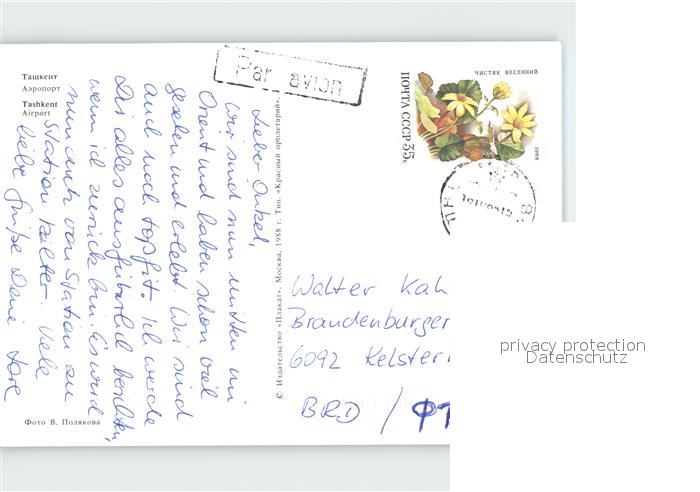 Ташкент
Аэропорт
Tashkent
Airport
Par avion
ЧИСТЯК ВЕСЕННИЙ
ПОЧТА СССР 35к
1988
Lieber Onkel,
wir sind nun mitten im
Orient und haben schon viel
gesehen und erlebt. Wir sind
auch noch topfit. Ich werde
Dir alles ausführlich berichten,
wenn ich zurück bin. Es wird
nun auch von Station zu
Station kälter. Viele
liebe Grüße Deine
© Издательство «Плакат». Москва, 1988 г. Тип. «Красный пролетарий».
Walter Kah
Brandenburger
6092 Kelster
BRD / ФР
Фото В. Полякова
privacy protection
Datenschutz